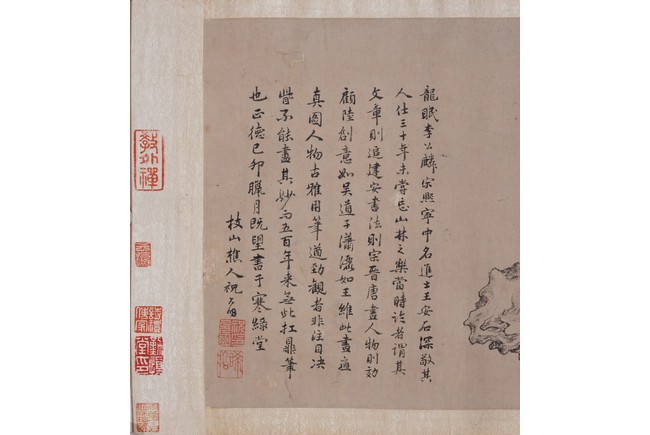 龍眠李公麟宋熙寧中名進士王安石深敬其
人仕三十年未嘗忘山林之樂當時論者謂其
文章則追建安書法則宗晉唐畫人物則効
顧陸創意如吳道子瀟灑如王維此畫應
真圖人物古雅用筆遒勁觀者非注目決
眥不能盡其妙而五百年來無此扛鼎筆
也正德己卯臘月既望書于寒綠堂
枝山樵人祝
教外禪